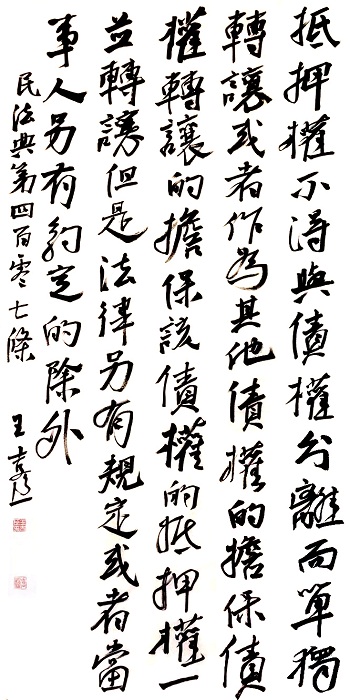 抵押權不得與債權分離而單獨
轉讓或者作為其他債權的擔保債
權轉讓的擔保該債權的抵押權一
並轉讓但是法律另有規定或者當
事人另有約定的除外
民法典第四百零七條
王